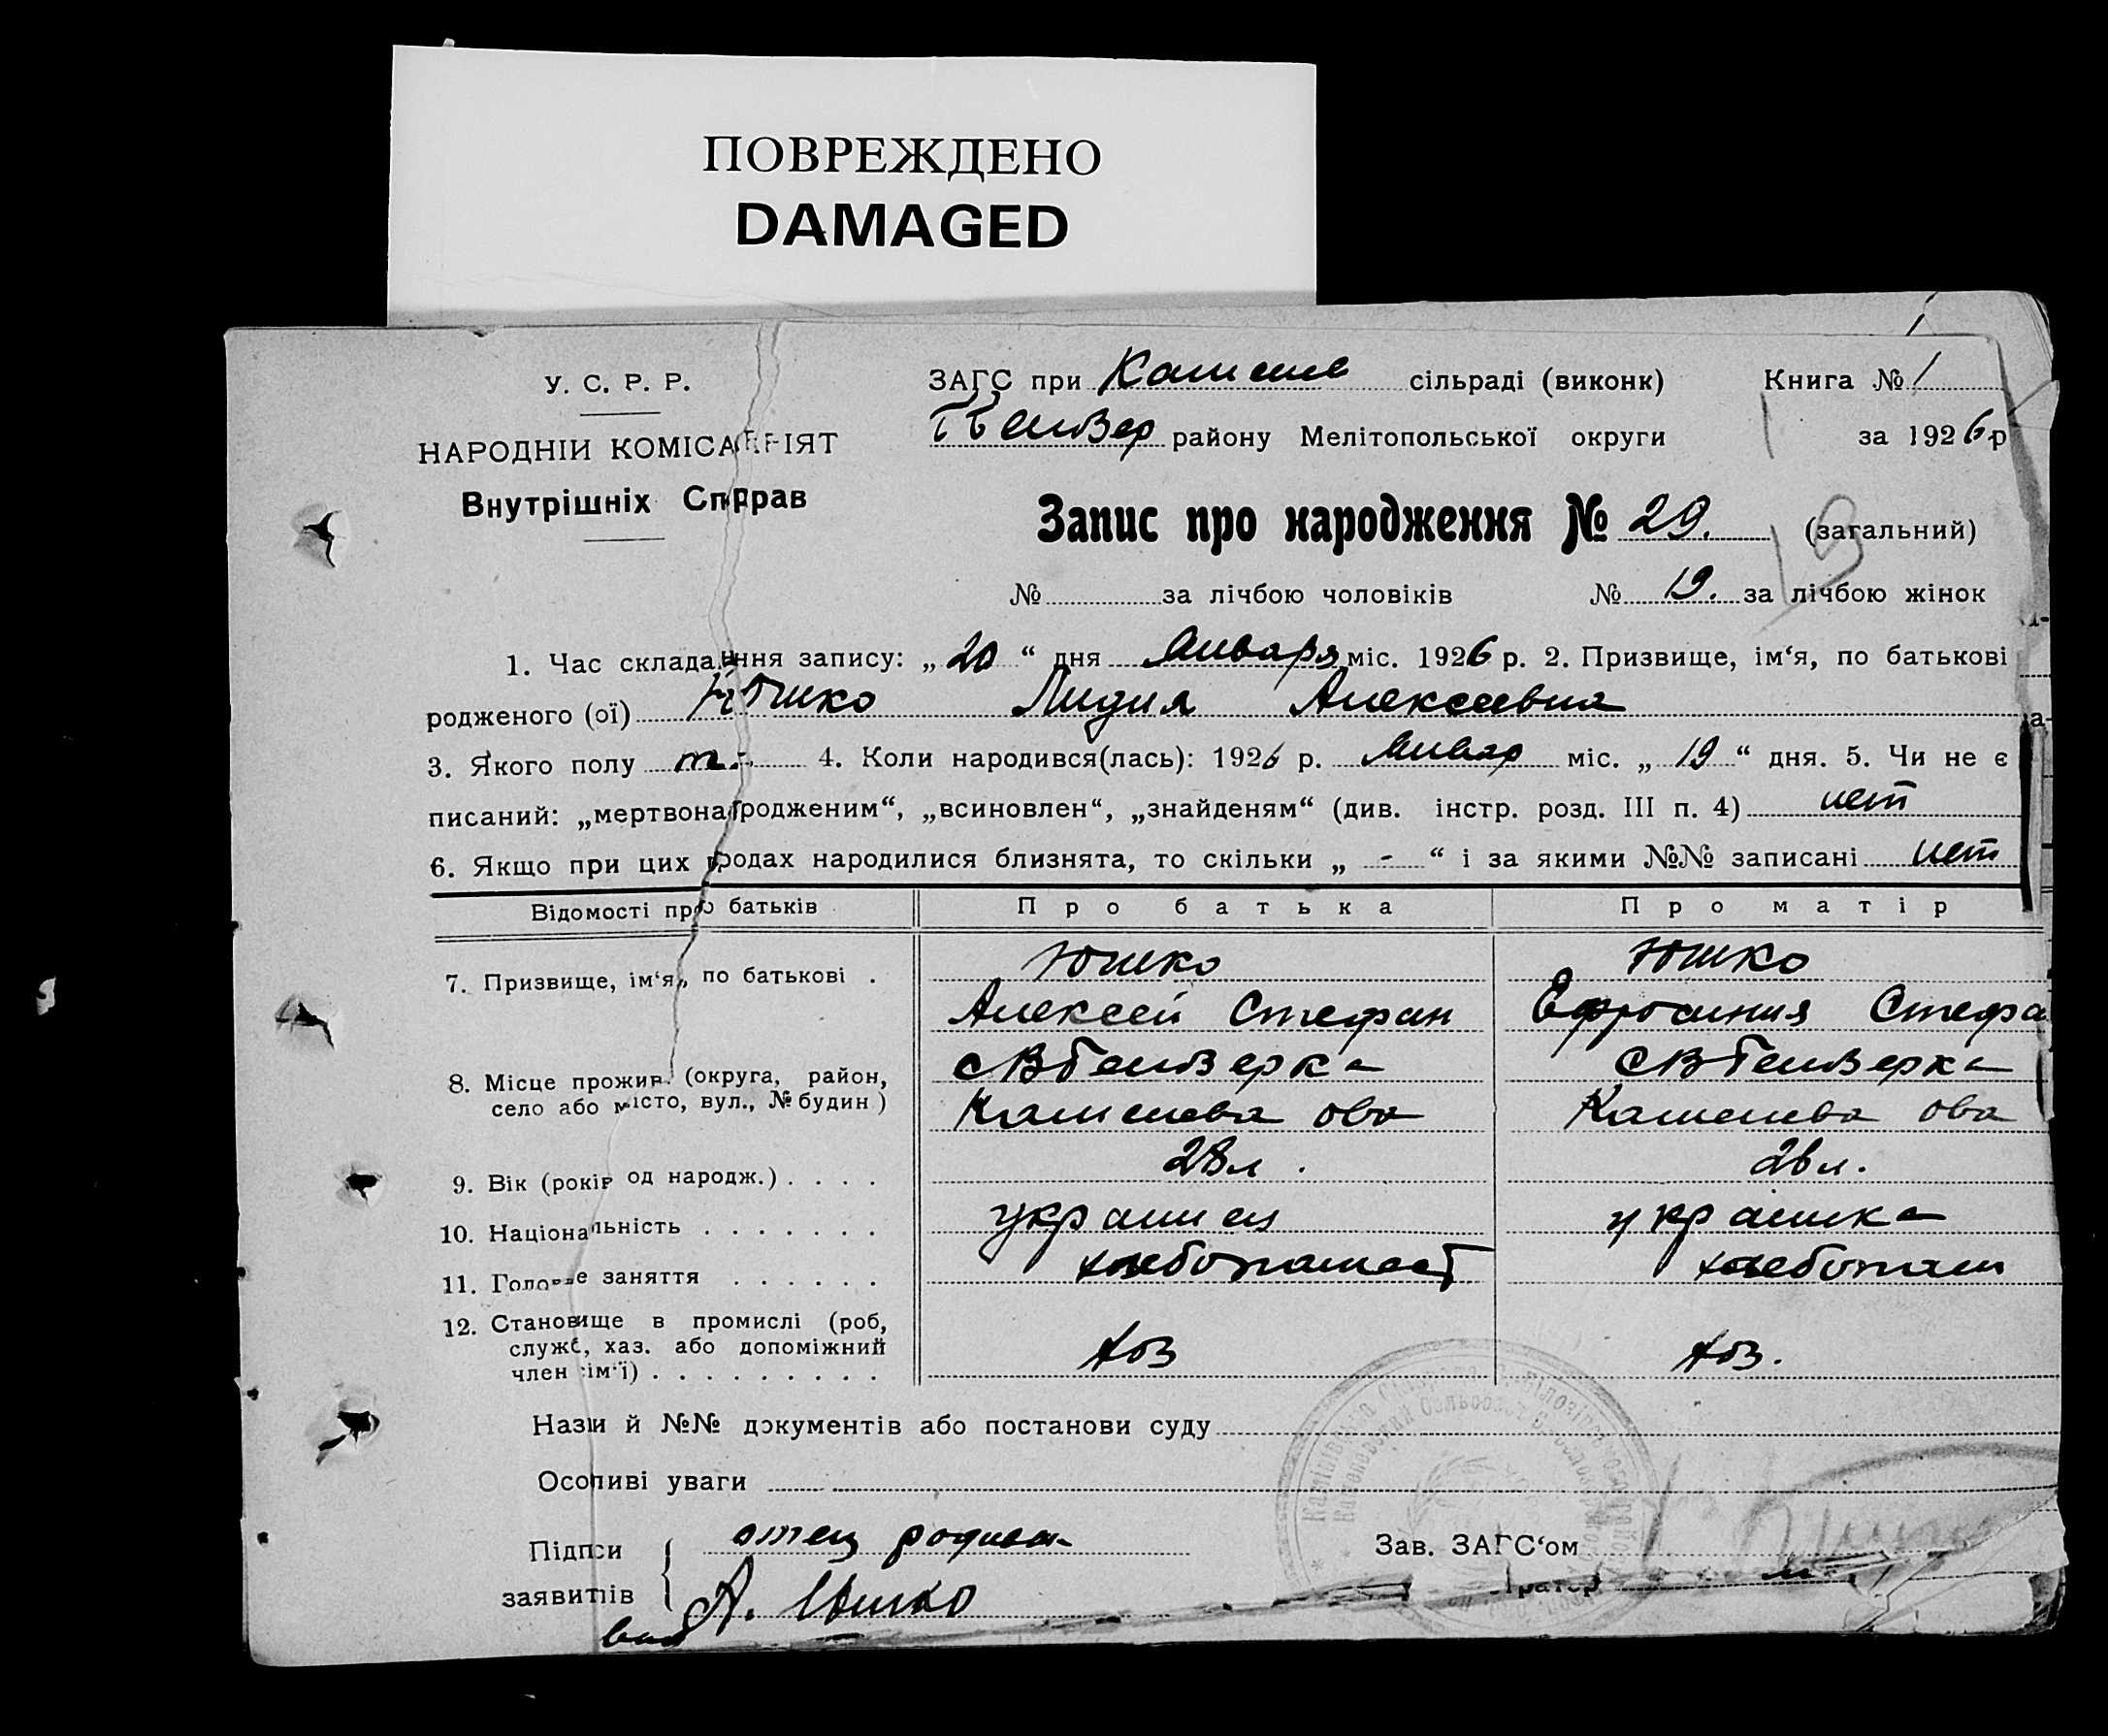 ПОВРЕЖДЕНО
DAMAGED
У. С. Р. Р.
НАРОДНІЙ КОМІСАРІЯТ
Внутрішніх Справ
ЗАГС при Камене сільраді (виконк)
района Мелітопольської округи
Книга № 1
за 1926 р
Запис про народження № 29. (загальний)
19
№ за лічбою чоловіків № 19. за лічбою жінок
1. Час складання запису: „20“ дня Января міс. 1926 р. 2. Призвище, ім‘я, по батькові
родженого (ої) Юшко Лидия Алексеевна
3. Якого полу 4. Коли народився(лась): 1926 р. Январ міс. „19“ дня. 5. Чи не є
писаний: „мертвонародженим“, „всиновлен“, „знайденям“ (див. інстр. розд. III п. 4) нет
6. Якщо при цих родах народилися близнята, то скільки „ - “ і за якими №№ записані нет
Відомості про батьків Про батька Про матір
7. Призвище, ім‘я, по батькові . Юшко Юшко
Алексей Стефан Ефросиния Стефа
8. Місце прожив. (округа, район,
село або місто, вул., № будин)
9. Вік (років од народж.) . . . . 28 л. 26 л.
10. Національність . . . . . . . украинец украинка
11. Головне заняття . . . . . . хлебопашест хлебопаш
12. Становище в промислі (роб,
служб, хаз. або допоміжний
член сім‘ї) . . . . . . . . . хоз хоз.
Назви й №№ документів або постанови суду
Особливі уваги
Підписи
заявитлів
отец
А. Юшко
Зав. ЗАГС‘ом